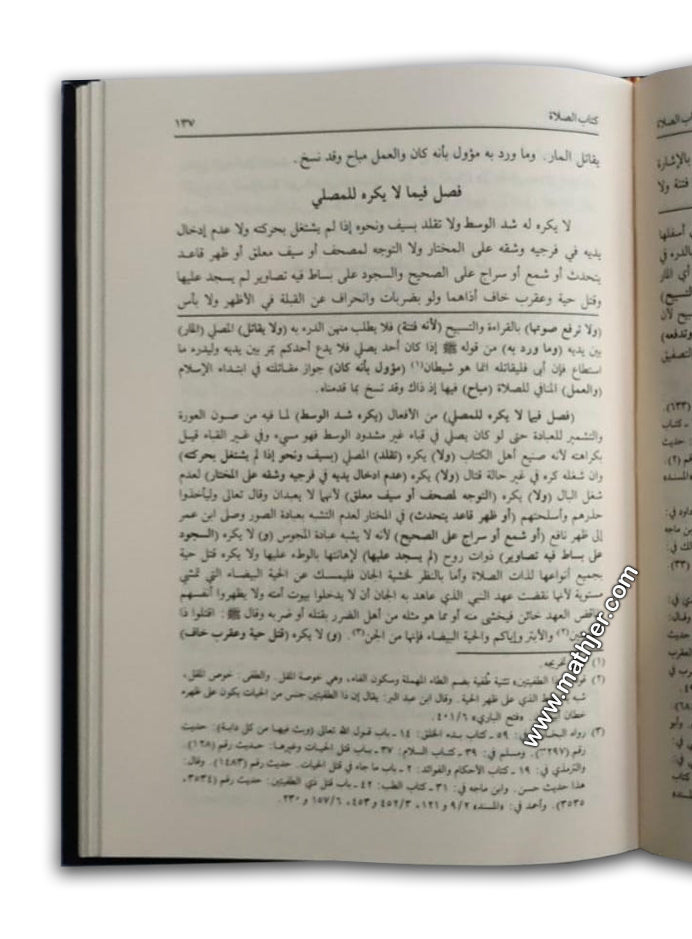 كتاب الصلاة
١٣٧
يقاتل المار. وما ورد به مؤول بأنه كان والعمل مباح وقد نسخ.
فصل فيما لا يكره للمصلي
لا يكره له شد الوسط ولا تقلد بسيف ونحوه إذا لم يشتغل بحركته ولا عدم إدخال
يديه في فرجيه وشقه على المختار ولا التوجه لمصحف أو سيف معلق أو ظهر قاعد
يتحدث أو شمع أو سراج على الصحيح والسجود على بساط فيه تصاوير لم يسجد عليها
وقتل حية وعقرب خاف أذاهما ولو بضربات وانحراف عن القبلة في الأظهر ولا بأس
(ولا ترفع صوتها) بالقراءة والتسبيح (لأنه فتنة) فلا يطلب منهن الدرء به (ولا يقاتل) المصلي (المار)
بين يديه (وما ورد به) من قوله ﷺ إذا كان أحد يصلي فلا يدع أحدكم يمر بين يديه وليدره ما
استطاع فإن أبى فليقاتله انما هو شيطان(١) (مؤول بأنه كان) جواز مقاتلته في ابتداء الإسلام
(والعمل) المنافي للصلاة (مباح) فيها إذ ذاك وقد نسخ بما قدمناه.
(فصل فيما لا يكره للمصلي) من الأفعال (يكره شد الوسط) لما فيه من صون العورة
والتشمير للعبادة حتى لو كان يصلي في قباء غير مشدود الوسط فهو مسيء وفي غير القباء قيل
بكراهته لأنه صنيع أهل الكتاب (ولا) يكره (تقلد) المصلي (بسيف ونحو إذا لم يشتغل بحركته)
وان شغله كره في غير حالة قتال (ولا) يكره (عدم ادخال يديه في فرجيه وشقه على المختار) لعدم
شغل البال (ولا) يكره (التوجه لمصحف أو سيف معلق) لأنهما لا يعبدان وقال تعالى وليأخذوا
حذرهم وأسلحتهم (أو ظهر قاعد يتحدث) في المختار لعدم التشبه بعبادة الصور وصلى ابن عمر
إلى ظهر نافع (أو شمع أو سراج على الصحيح) لأنه لا يشبه عبادة المجوس (و) لا يكره (السجود
على بساط فيه تصاوير) ذوات روح (لم يسجد عليها) لإهانتها بالوطء عليها ولا يكره قتل حية
بجميع أنواعها لذات الصلاة وأما بالنظر لخشية الجان فليمسك عن الحية البيضاء التي تمشي
مستوية لأنها نقضت عهد النبي الذي عاهد به الجان أن لا يدخلوا بيوت أمته ولا يظهروا أنفسهم
العهد خائن فيخشى منه أو مما هو مثله من أهل الضرر بقتله أو ضربه وقال ﷺ: اقتلوا ذا
(٢) والأبتر وإياكم والحية البيضاء فإنها من الجن(٣). (و) لا يكره (قتل حية وعقرب خاف)
(١) تخريجه.
(٢) تثنية طُفية بضم الطاء المهملة وسكون الفاء، وهي خوصة المقل. والطفى: خوص المقل،
شبه الذي على ظهر الحية. وقال ابن عبد البر: يقال إن ذا الطفيتين جنس من الحيات يكون على ظهره
خطان «فتح الباري» ٤٠١/٦.
(٣) رواه ٥٩ ـ كتاب بدء الخلق: ١٤ ـ باب قول الله تعالى (وبث فيها من كل دابة): حديث
رقم ومسلم في: ٣٩ ـ كتاب السلام: ٣٧ ـ باب قتل الحيات وغيرها: حديث رقم (١٢٨).
والترمذي في: ١٩ ـ كتاب الأحكام والفوائد: ٢ ـ باب ما جاء في قتل الحيات. حديث رقم (١٤٨٣). وقال:
هذا حديث حسن. وابن ماجه في: ٣١ ـ كتاب الطب: ٤٢ ـ باب قتل ذي الطفيتين: حديث رقم (٣٥٣٤،
٣٥٣٥). وأحمد في: «المسند» ٩/٢ و ١٢١، ٤٥٢/٣ و ٤٥٣، ١٥٧/٦ و ٢٣٠.
www.mathjer.com